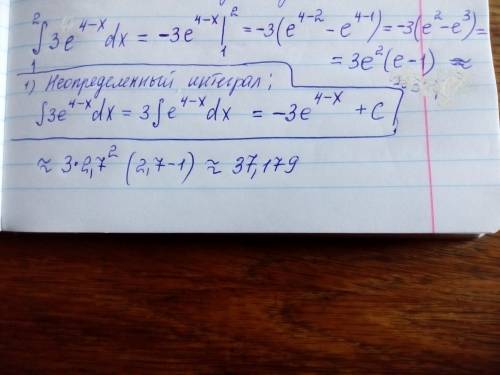 ₁∫² 3e^{4-x} dx = -3e^{4-x} |₁² = -3(e^{4-2} - e^{4-1}) = -3(e² - e³) =
= 3e²(e-1) ≈
1) Неопределенный интеграл;
∫3e^{4-x} dx = 3∫e^{4-x} dx = -3e^{4-x} + C
≈ 3·2,7² (2,7-1) ≈ 37,179